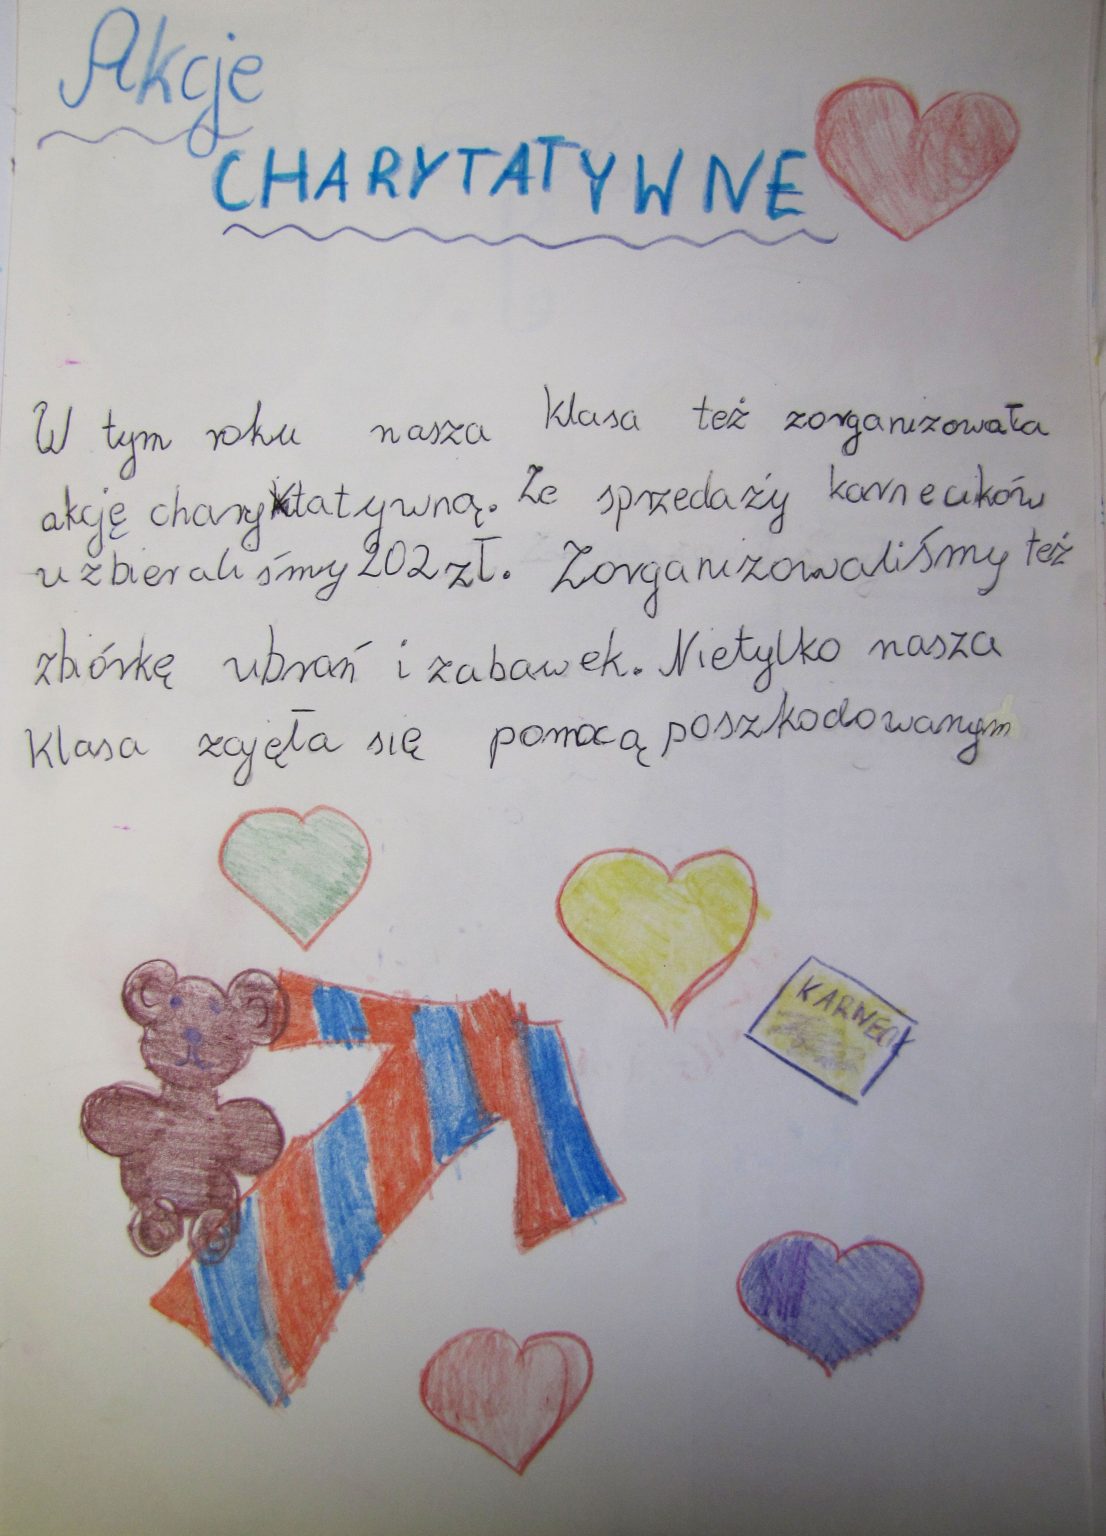 Akcje
CHARYTATYWNE
W tym roku nasza klasa też zorganizowała
akcję charytatywną. Ze sprzedaży karnecików
uzbieraliśmy 202 zł. Zorganizowaliśmy też
zbiórkę ubrań i zabawek. Nietylko nasza
klasa zajęła się pomocą poszkodowanym
KARNECIK